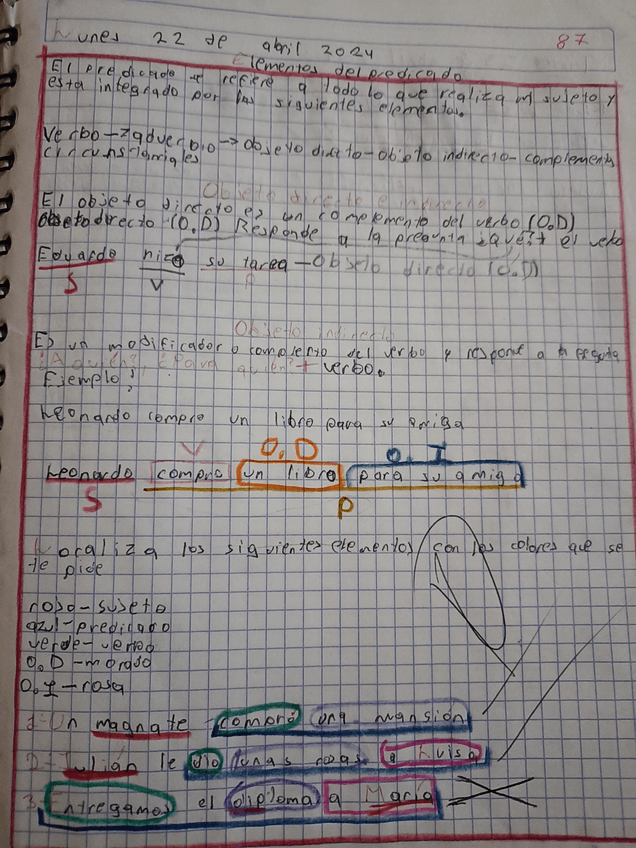 Lunes 22 de abril 2024 87
Elementos del predicado
El predicado se refiere a todo lo que realiza un sujeto y
esta integrado por los siguientes elementos.
Verbo → adverbio → objeto directo - objeto indirecto - complementos
circunstanciales
Objeto directo e indirecto
El objeto directo es un complemento del verbo (O.D)
objeto directo (O.D) Responde a la pregunta ¿qué? el verbo
Eduardo hizo su tarea - Objeto directo (O.D)
S V P
Objeto indirecto
Es un modificador o complento del verbo y responde a la
¿A quién?, ¿Para quién? + verbo.
Ejemplo:
Leonardo compro un libro para su amiga
V O.D O.I
Leonardo compro un libro para su amiga
S P
Localiza los siguientes elementos con los colores que se
te pide
rojo - sujeto
azul - predicado
verde - verbo
O.D - morado
O.I - rosa
1- Un magnate compró una mansión
2- Julian le dio unas rosas a Luisa
3- Entregamos el diploma a Mario